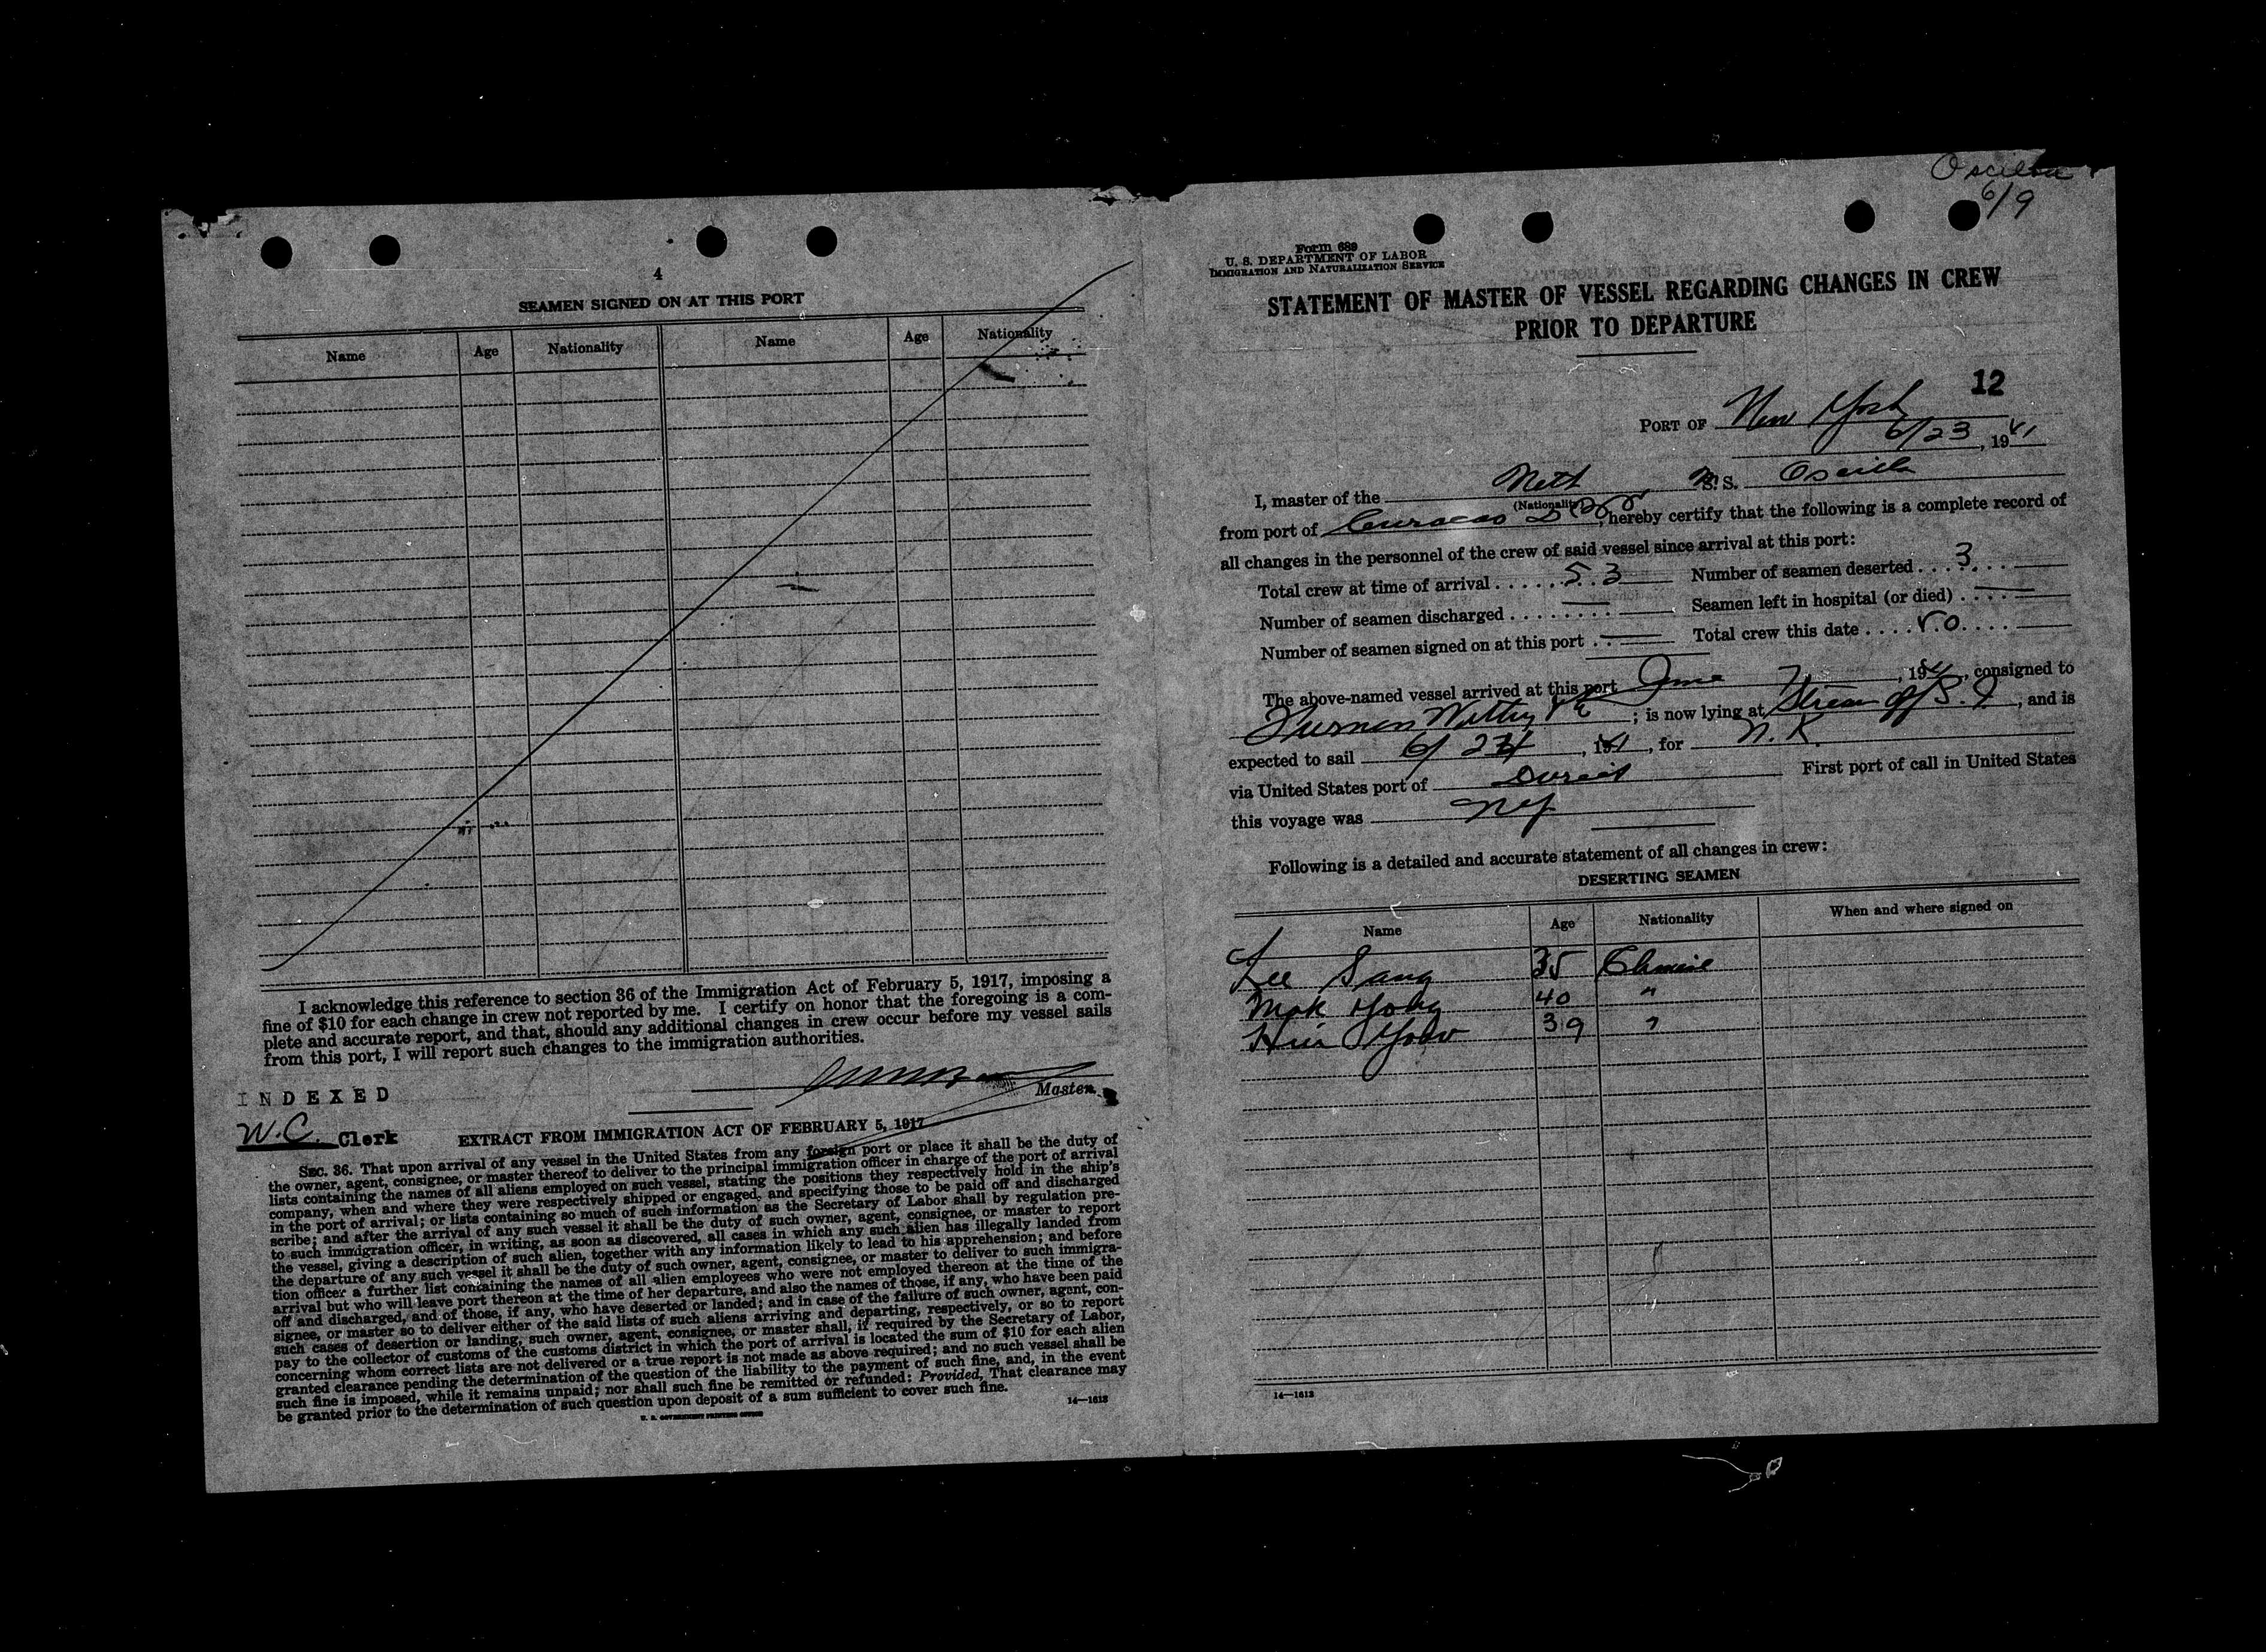 4
SEAMEN SIGNED ON AT THIS PORT
Name Age Nationality Name Age Nationality
I acknowledge this reference to section 36 of the Immigration Act of February 5, 1917, imposing a
fine of $10 for each change in crew not reported by me. I certify on honor that the foregoing is a com-
plete and accurate report, and that, should any additional changes in crew occur before my vessel sails
from this port, I will report such changes to the immigration authorities.
Master.
INDEXED
W.C. Clerk
EXTRACT FROM IMMIGRATION ACT OF FEBRUARY 5, 1917
SEC. 36. That upon arrival of any vessel in the United States from any foreign port or place it shall be the duty of
the owner, agent, consignee, or master thereof to deliver to the principal immigration officer in charge of the port of arrival
lists containing the names of all aliens employed on such vessel, stating the positions they respectively hold in the ship's
company, when and where they were respectively shipped or engaged, and specifying those to be paid off and discharged
in the port of arrival; or lists containing so much of such information as the Secretary of Labor shall by regulation pre-
scribe; and after the arrival of any such vessel it shall be the duty of such owner, agent, consignee, or master to report
to such immigration officer, in writing, as soon as discovered, all cases in which any such alien has illegally landed from
the vessel, giving a description of such alien, together with any information likely to lead to his apprehension; and before
the departure of any such vessel it shall be the duty of such owner, agent, consignee, or master to deliver to such immigra-
tion officer a further list containing the names of all alien employees who were not employed thereon at the time of the
arrival but who will leave port thereon at the time of her departure, and also the names of those, if any, who have been paid
off and discharged, and of those, if any, who have deserted or landed; and in case of the failure of such owner, agent, con-
signee, or master so to deliver either of the said lists of such aliens arriving and departing, respectively, or so to report
such cases of desertion or landing, such owner, agent, consignee, or master shall, if required by the Secretary of Labor,
pay to the collector of customs of the customs district in which the port of arrival is located the sum of $10 for each alien
concerning whom correct lists are not delivered or a true report is not made as above required; and no such vessel shall be
granted clearance pending the determination of the question of the liability to the payment of such fine, and, in the event
such fine is imposed, while it remains unpaid; nor shall such fine be remitted or refunded: Provided, That clearance may
be granted prior to the determination of such question upon deposit of a sum sufficient to cover such fine.
U. S. GOVERNMENT PRINTING OFFICE 14—1613
6/9
Form 689
U. S. DEPARTMENT OF LABOR
IMMIGRATION AND NATURALIZATION SERVICE
STATEMENT OF MASTER OF VESSEL REGARDING CHANGES IN CREW
PRIOR TO DEPARTURE
12
PORT OF New York
6/23, 1941
I, master of the Neth S. S. Oscilla
(Nationality)
from port of Curacao, hereby certify that the following is a complete record of
all changes in the personnel of the crew of said vessel since arrival at this port:
Total crew at time of arrival 53 Number of seamen deserted 3
Number of seamen discharged — Seamen left in hospital (or died) —
Number of seamen signed on at this port — Total crew this date 50
The above-named vessel arrived at this port June 7, 1941, consigned to
; is now lying at Stream off S. I, and is
expected to sail 6/24, 1941, for N. K.
via United States port of Direct First port of call in United States
this voyage was NY
Following is a detailed and accurate statement of all changes in crew:
DESERTING SEAMEN
Name Age Nationality When and where signed on
Lee Sang 35 Chinese
Mok Yong 40 "
39 "
14—1613